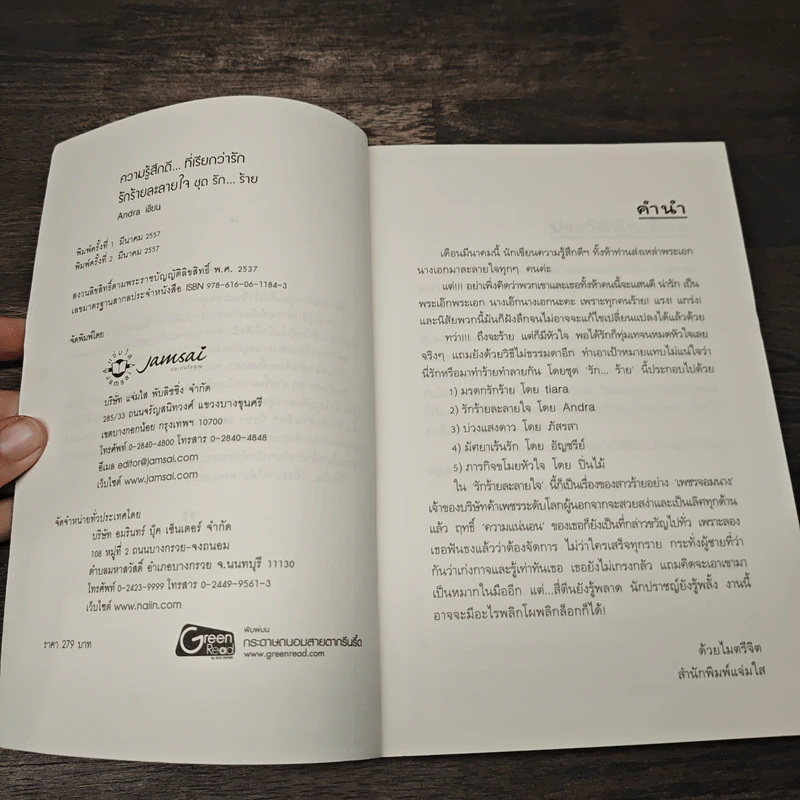 ความรู้สึกดี... ที่เรียกว่ารัก
รักร้ายละลายใจ ชุด รัก... ร้าย
Andra เขียน
พิมพ์ครั้งที่ 1 มีนาคม 2557
พิมพ์ครั้งที่ 2 มีนาคม 2557
สงวนลิขสิทธิ์ตามพระราชบัญญัติลิขสิทธิ์ พ.ศ. 2537
เลขมาตรฐานสากลประจำหนังสือ ISBN 978-616-06-1184-3
จัดพิมพ์โดย
jamsai
บริษัท แจ่มใส พับลิชชิ่ง จำกัด
285/33 ถนนจรัญสนิทวงศ์ แขวงบางขุนศรี
เขตบางกอกน้อย กรุงเทพฯ 10700
โทรศัพท์ 0-2840-4800 โทรสาร 0-2840-4848
อีเมล editor@jamsai.com
เว็บไซต์ www.jamsai.com
จัดจำหน่ายทั่วประเทศโดย
บริษัท อมรินทร์ บุ๊ค เซ็นเตอร์ จำกัด
108 หมู่ที่ 2 ถนนบางกรวย-จงถนอม
ตำบลมหาสวัสดิ์ อำเภอบางกรวย จ.นนทบุรี 11130
โทรศัพท์ 0-2423-9999 โทรสาร 0-2449-9561-3
เว็บไซต์ www.naiin.com
ราคา 279 บาท
Green Read
พิมพ์บน
กระดาษถนอมสายตากรีนรี้ด
www.greenread.com
คำนำ
เดือนมีนาคมนี้ นักเขียนความรู้สึกดีฯ ทั้งห้าท่านส่งเหล่าพระเอก
นางเอกมาละลายใจทุกๆ คนค่ะ
แต่!!! อย่าเพิ่งคิดว่าพวกเขาและเธอทั้งห้าคนนี้จะแสนดี น่ารัก เป็น
พระเอ๊กพระเอก นางเอ๊กนางเอกนะคะ เพราะทุกคนร้าย! แรง! แกร่ง!
และนิสัยพวกนี้มันก็ฝังลึกจนไม่อาจจะแก้ไขเปลี่ยนแปลงได้แล้วด้วย
ทว่า!!! ถึงจะร้าย แต่ก็มีหัวใจ พอได้รักก็ทุ่มเทจนหมดหัวใจเลย
จริงๆ แถมยังด้วยวิธีไม่ธรรมดาอีก ทำเอาเป้าหมายแทบไม่แน่ใจว่า
นี่รักหรือมาทำร้ายทำลายกัน โดยชุด 'รัก... ร้าย' นี้ประกอบไปด้วย
1) มรดกรักร้าย โดย tiara
2) รักร้ายละลายใจ โดย Andra
3) บ่วงแสงดาว โดย ภัสรสา
4) มัศยาเร้นรัก โดย อัญชรีย์
5) ภารกิจขโมยหัวใจ โดย ปิ่นไม้
ใน 'รักร้ายละลายใจ' นี้ก็เป็นเรื่องของสาวร้ายอย่าง 'เพชรจอมนาง'
เจ้าของบริษัทค้าเพชรระดับโลกผู้นอกจากจะสวยสง่าและเป็นเลิศทุกด้าน
แล้ว ฤทธิ์ 'ความแน่นอน' ของเธอก็ยังเป็นที่กล่าวขวัญไปทั่ว เพราะลอง
เธอฟันธงแล้วว่าต้องจัดการ ไม่ว่าใครเสร็จทุกราย กระทั่งผู้ชายที่ว่า
กันว่าเก่งกาจและรู้เท่าทันเธอ เธอยังไม่เกรงกลัว แถมคิดจะเอาเขามา
เป็นหมากในมืออีก แต่...สี่ตีนยังรู้พลาด นักปราชญ์ยังรู้พลั้ง งานนี้
อาจจะมีอะไรพลิกโผพลิกล็อกก็ได้!
ด้วยไมตรีจิต
สำนักพิมพ์แจ่มใส